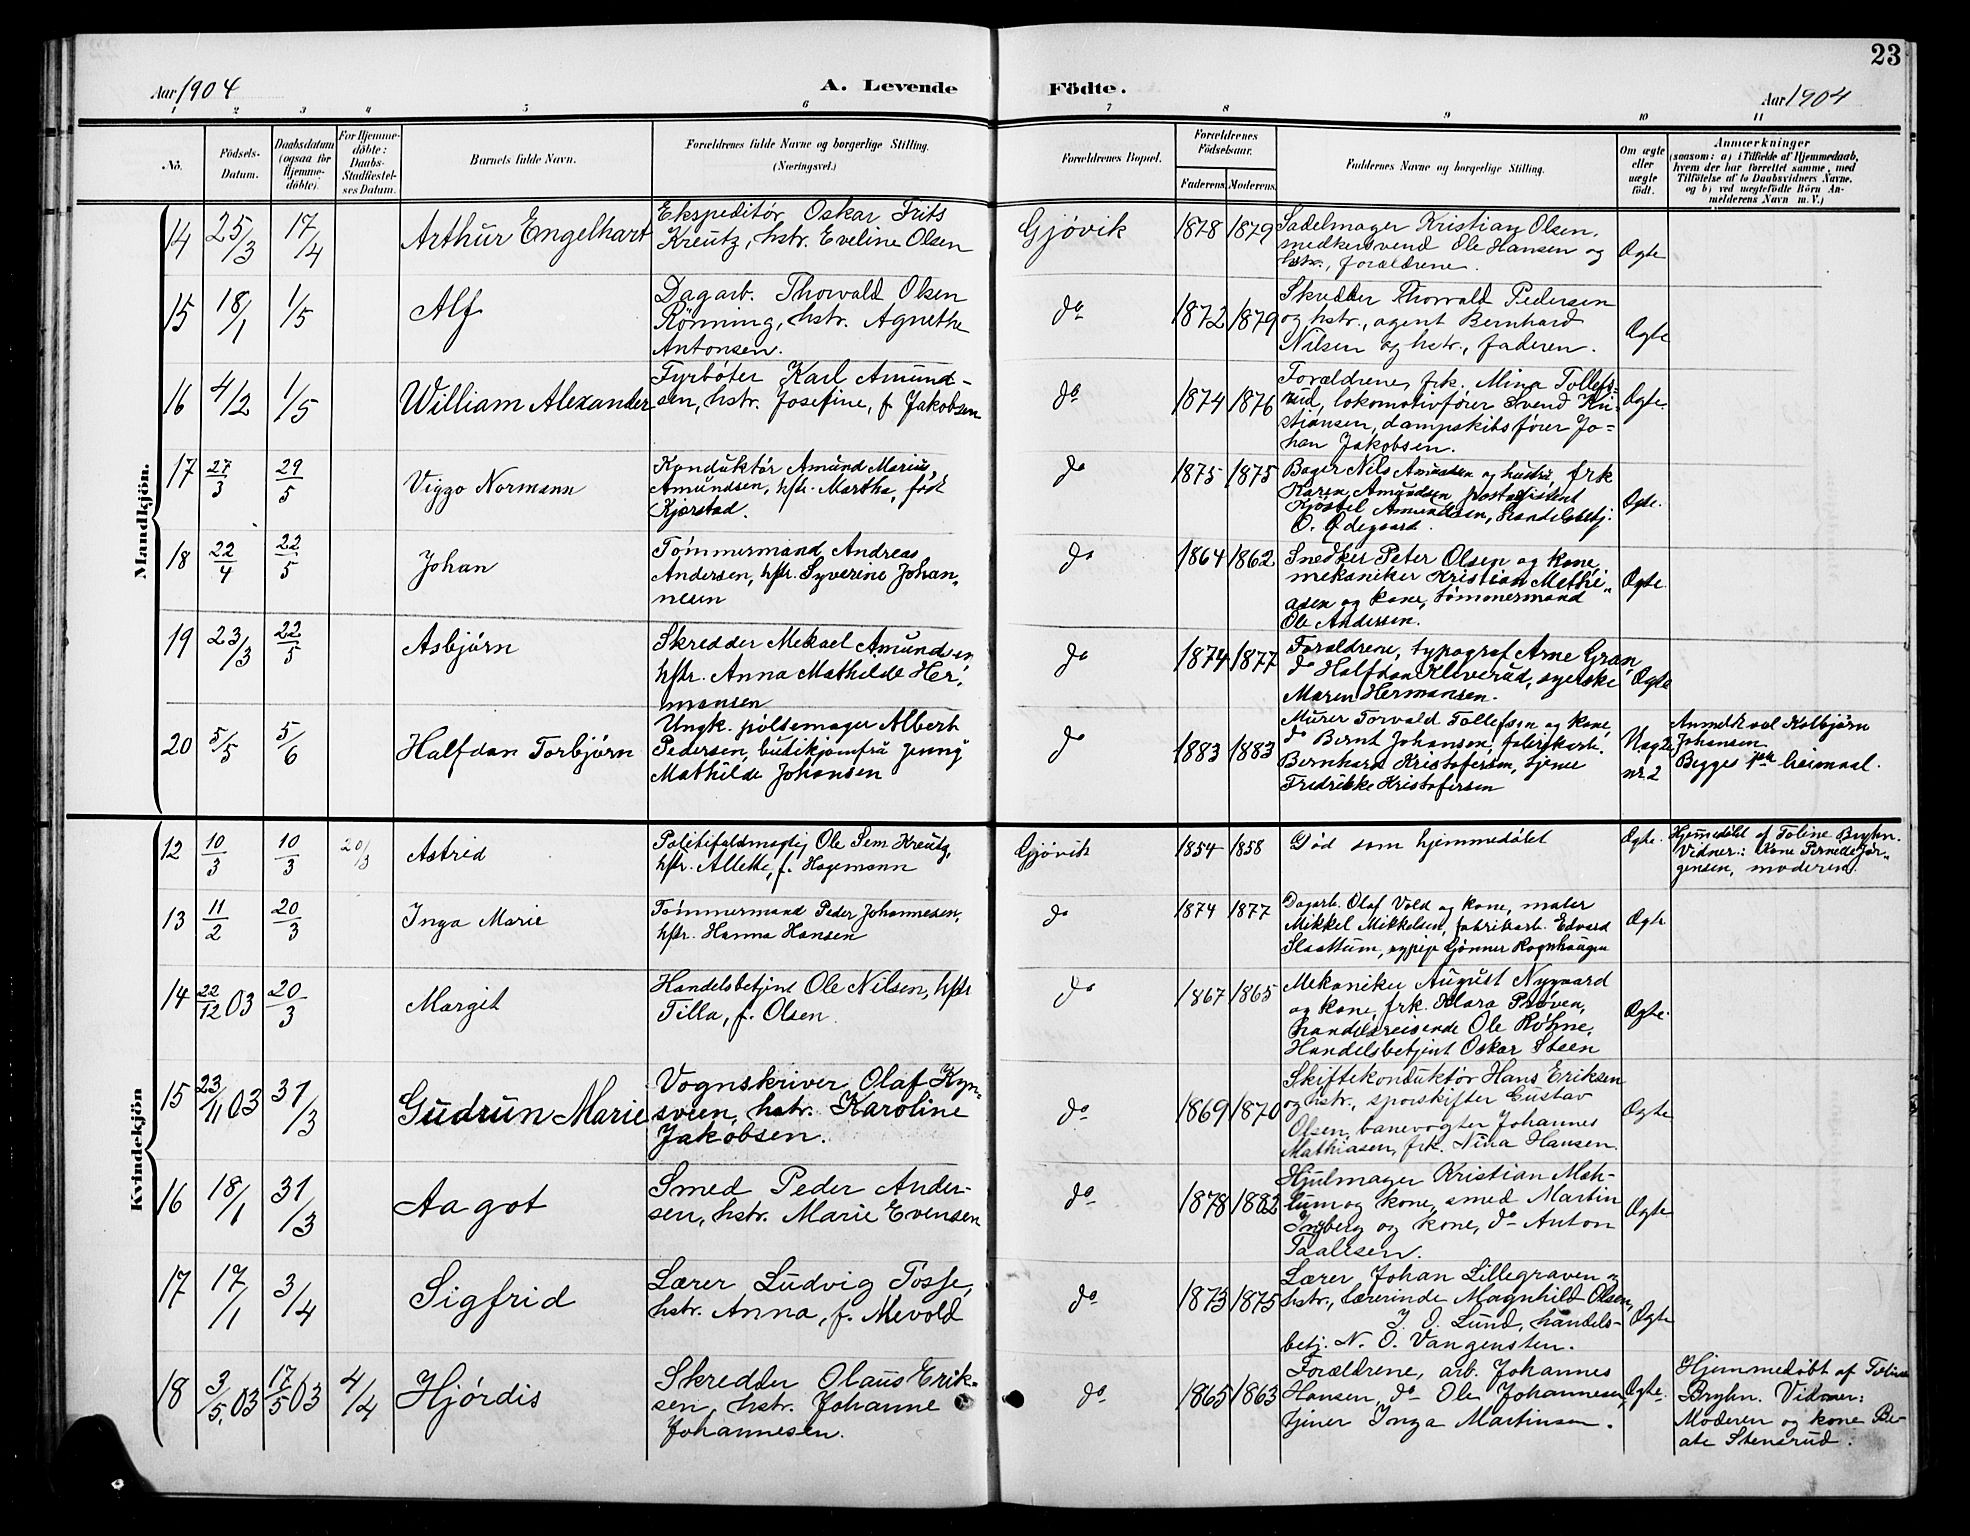 23
Aar 1904 A. Levende Födte. Aar 1904
1 2 3 4 5 6 7 8 9 10 11
No.
Födsels-
Datum.
Daabsdatum
(ogsaa for
Hjemme-
döbte).
For Hjemme-
döbte:
Daabs-
Stadfæstel-
ses Datum.
Barnets fulde Navn.
Forældrenes fulde Navne og borgerlige Stilling.
(Næringsvei.)
Forældrenes Bopæl.
Forældrenes
Födselsaar.
Faderens. Moderens.
Faddernes Navne og borgerlige Stilling.
Om ægte
eller
uægte
födt.
Anmærkninger
(saasom: a) i Tilfælde af Hjemmedaab,
hvem der har forrettet samme, med
Tilföielse af to Daabsvidners Navne.
og b) ved uægtefödte Börn An-
melderens Navn m. V.)
Mandkjön.
14 25/3 17/4 Arthur Engelhart
Ekspeditör Oskar Frits
Kreutz, hstr. Eveline Olsen
Gjövik 1878 1879
Sadelmager Kristian Olsen,
Ole Hansen og
hstr., forældrene.
Ægte
15 18/1 1/5 Alf
Dagarb. Thorvald Olsen
Rönning, hstr. Agnethe
Antonsen.
do 1872 1879
Skredder Thorvald Pedersen
og hstr., agent Bernhard
Nilsen og hstr., faderen.
Ægte
16 4/2 1/5 William Alexander
Fyrböter Karl Amund-
sen, hstr. Josefine, f. Jakobsen
do 1874 1876
Forældrene, frk. Mina Tollefs-
rud, lokomotivförer Svend Kri-
stiansen, dampskibsförer Jo-
han Jakobsen.
Ægte.
17 27/3 29/5 Viggo Normann
Konduktör Amund Marius
Amundsen, hstr. Martha, född
Kjerstad.
do 1875 1875
Bager Nils Amundsen og hustru, frk
Karen Amundsen, postassistent
Amundsen, handelsbetj.
O. Ödegaard.
Ægte.
18 22/4 22/5 Johan
Tömmermand Andreas
Andersen, hstr. Syverine Johan-
nesen
do 1864 1862
Snedker Peter Olsen og kone,
mekaniker Kristian Mathi-
asen og kone, tömmermand
Ole Andersen.
Ægte.
19 23/3 22/5 Asbjörn
Skredder Mekael Amundsen
hstr. Anna Mathilde Her-
mansen
do 1874 1877
Forældrene, typograf Arne Gran,
do Halfdan Kliverud, syerske
Maren Hermansen.
Ægte
20 5/5 5/6 Halfdan Torbjörn
Ungk. pölsemager Albert
Pedersen, butikjomfru Jenny
Mathilde Johansen
do 1883 1883
Murer Torvald Tollefsen og kone,
do Bernt Johansen, fabrikarb.
Bernhard Kristofersen, tjener
Fredrikke Kristofersen
Uægte
nr. 2
Anmeldt ved Kolbjörn
Johansen
Begges 1ste leiermaal.
Kvindekjön
12 10/3 10/3 20/3 Astrid
Politifuldmægtig Ole Sem Kreutz,
hstr. Allette, f. Hagemann
Gjövik 1854 1858
Död som hjemmedöbt
Ægte.
Hjemmedöbt af Toline Bryhn.
Vidner: Kone Pernelle Jör-
gensen, moderen.
13 11/2 20/3 Inga Marie
Tömmermand Peder Johannesen,
hstr. Hanna Hansen
do 1874 1877
Dagarb. Olaf Vold og kone, maler
Mikkel Mikkelsen, fabrikarb. Edvard
Slaattum, sypige Gönner Rognhaugen
Ægte
14 22/12 03 20/3 Margit
Handelsbetjent Ole Nilsen, hstr
Tilla, f. Olsen.
do 1867 1865
Mekaniker August Nygaard
og kone, frk. Klara Pröven,
handelsreisende Ole Röhne,
Handelsbetjent Oskar Steen
Ægte.
15 23/11 03 31/3 Gudrun Marie
Vognskriver Olaf Kyn-
sveen, hstr. Karoline
Jakobsen.
do 1869 1870
Skiftekonduktör Hans Eriksen
og hstr., sporskifter Gustav
Olsen, banevogter Johannes
Mathiasen, frk. Nina Hansen.
Ægte
16 18/1 31/3 Aagot
Smed Peder Ander-
sen, hstr. Marie Evensen
do 1878 1882
Hjulmager Kristian Mæh-
lum og kone, smed Martin
Ingberg og kone, do Anton
Paalesen.
Ægte
17 17/1 3/4 Sigfrid
Lærer Ludvig Tosse,
hstr. Anna, f. Mevold
do 1873 1875
Lærer Johan Lillegraven og
hstr., lærerinde Magnhild Olsen,
J. O. Lund, handels-
betj. N. O. Vangensten.
Ægte
18 3/5 03 17/5 03 4/4 Hjördis
Skredder Olaus Erik-
sen, hstr. Johanne
Johannesen.
do 1865 1863
Forældrene, arb. Johannes
Hansen, do Ole Johannesen
tjener Inga Martinsen.
Ægte.
Hjemmedöbt af Toline
Bryhn. Vidner:
Moderen og kone Be-
ate Stensrud.